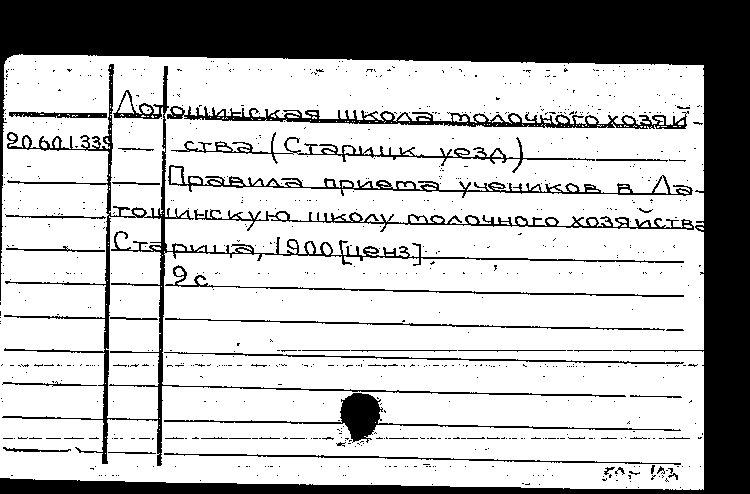 Лотошинская школа молочного хозяй-
20.60.1.339 ства (Старицк. уезд)
Правила приема учеников в Ла-
тошинскую школу молочного хозяйства
Старица, 1900 [ценз].
9 с.